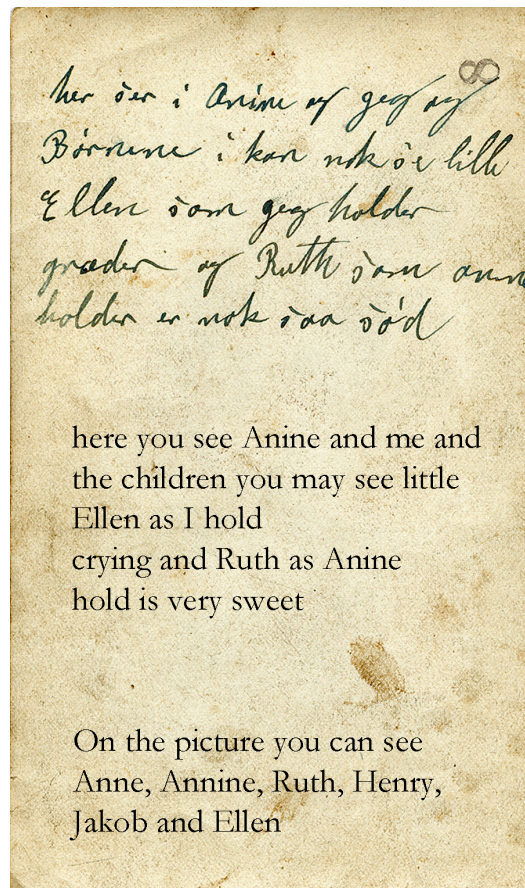 8
her ser i Anine og geg og
Börnene i kan nok se lille
Ellen som geg holder
græder og Ruth som anine
holder er nok saa sód
here you see Anine and me and
the children you may see little
Ellen as I hold
crying and Ruth as Anine
hold is very sweet
On the picture you can see
Anne, Annine, Ruth, Henry,
Jakob and Ellen